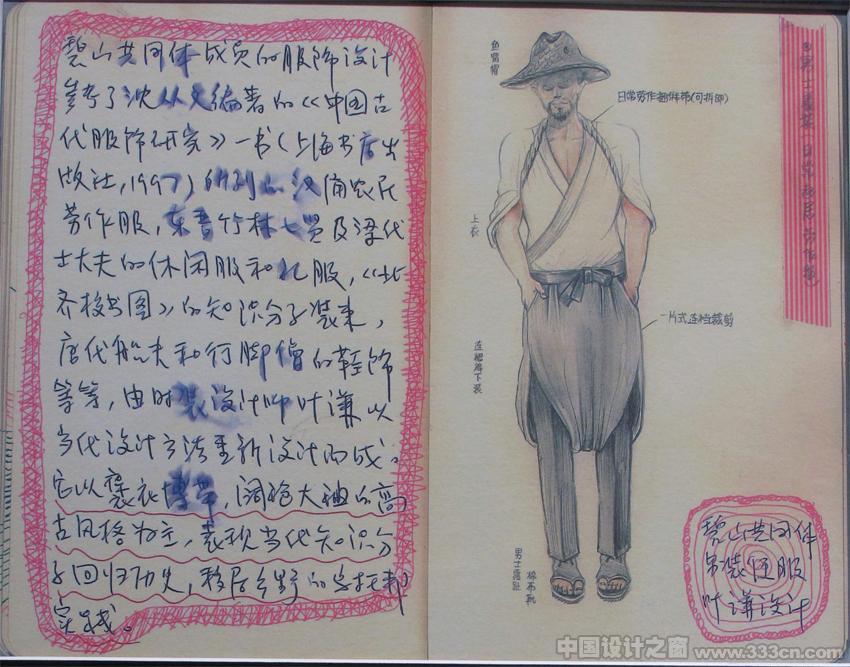 碧山共同体成员的服饰设计
参考了沈从文编著的《中国古
代服饰研究》一书(上海书店出
版社,1997)
俑农民
劳作服,东晋竹林七贤及梁代
士大夫的休闲服和礼服,《北
齐校书图》的知识分子装束,
唐代船夫和行脚僧的鞋饰
等等,由时装设计师叶谦以
当代设计方法重新设计而成。
它以褒衣博带,阔袍大袖的高
古风格为主,表现当代知识分
子回归历史,移居乡野的乌托邦
实践。
鱼骨帽
日常劳作捆绑带(可拆卸)
上衣
一片式连裆裁剪
连裙裤下装
男士露趾
棉布靴
男士着装
日常起居
劳作装
碧山共同体
男装便服
叶谦设计
中国设计之窗
www.333cn.com